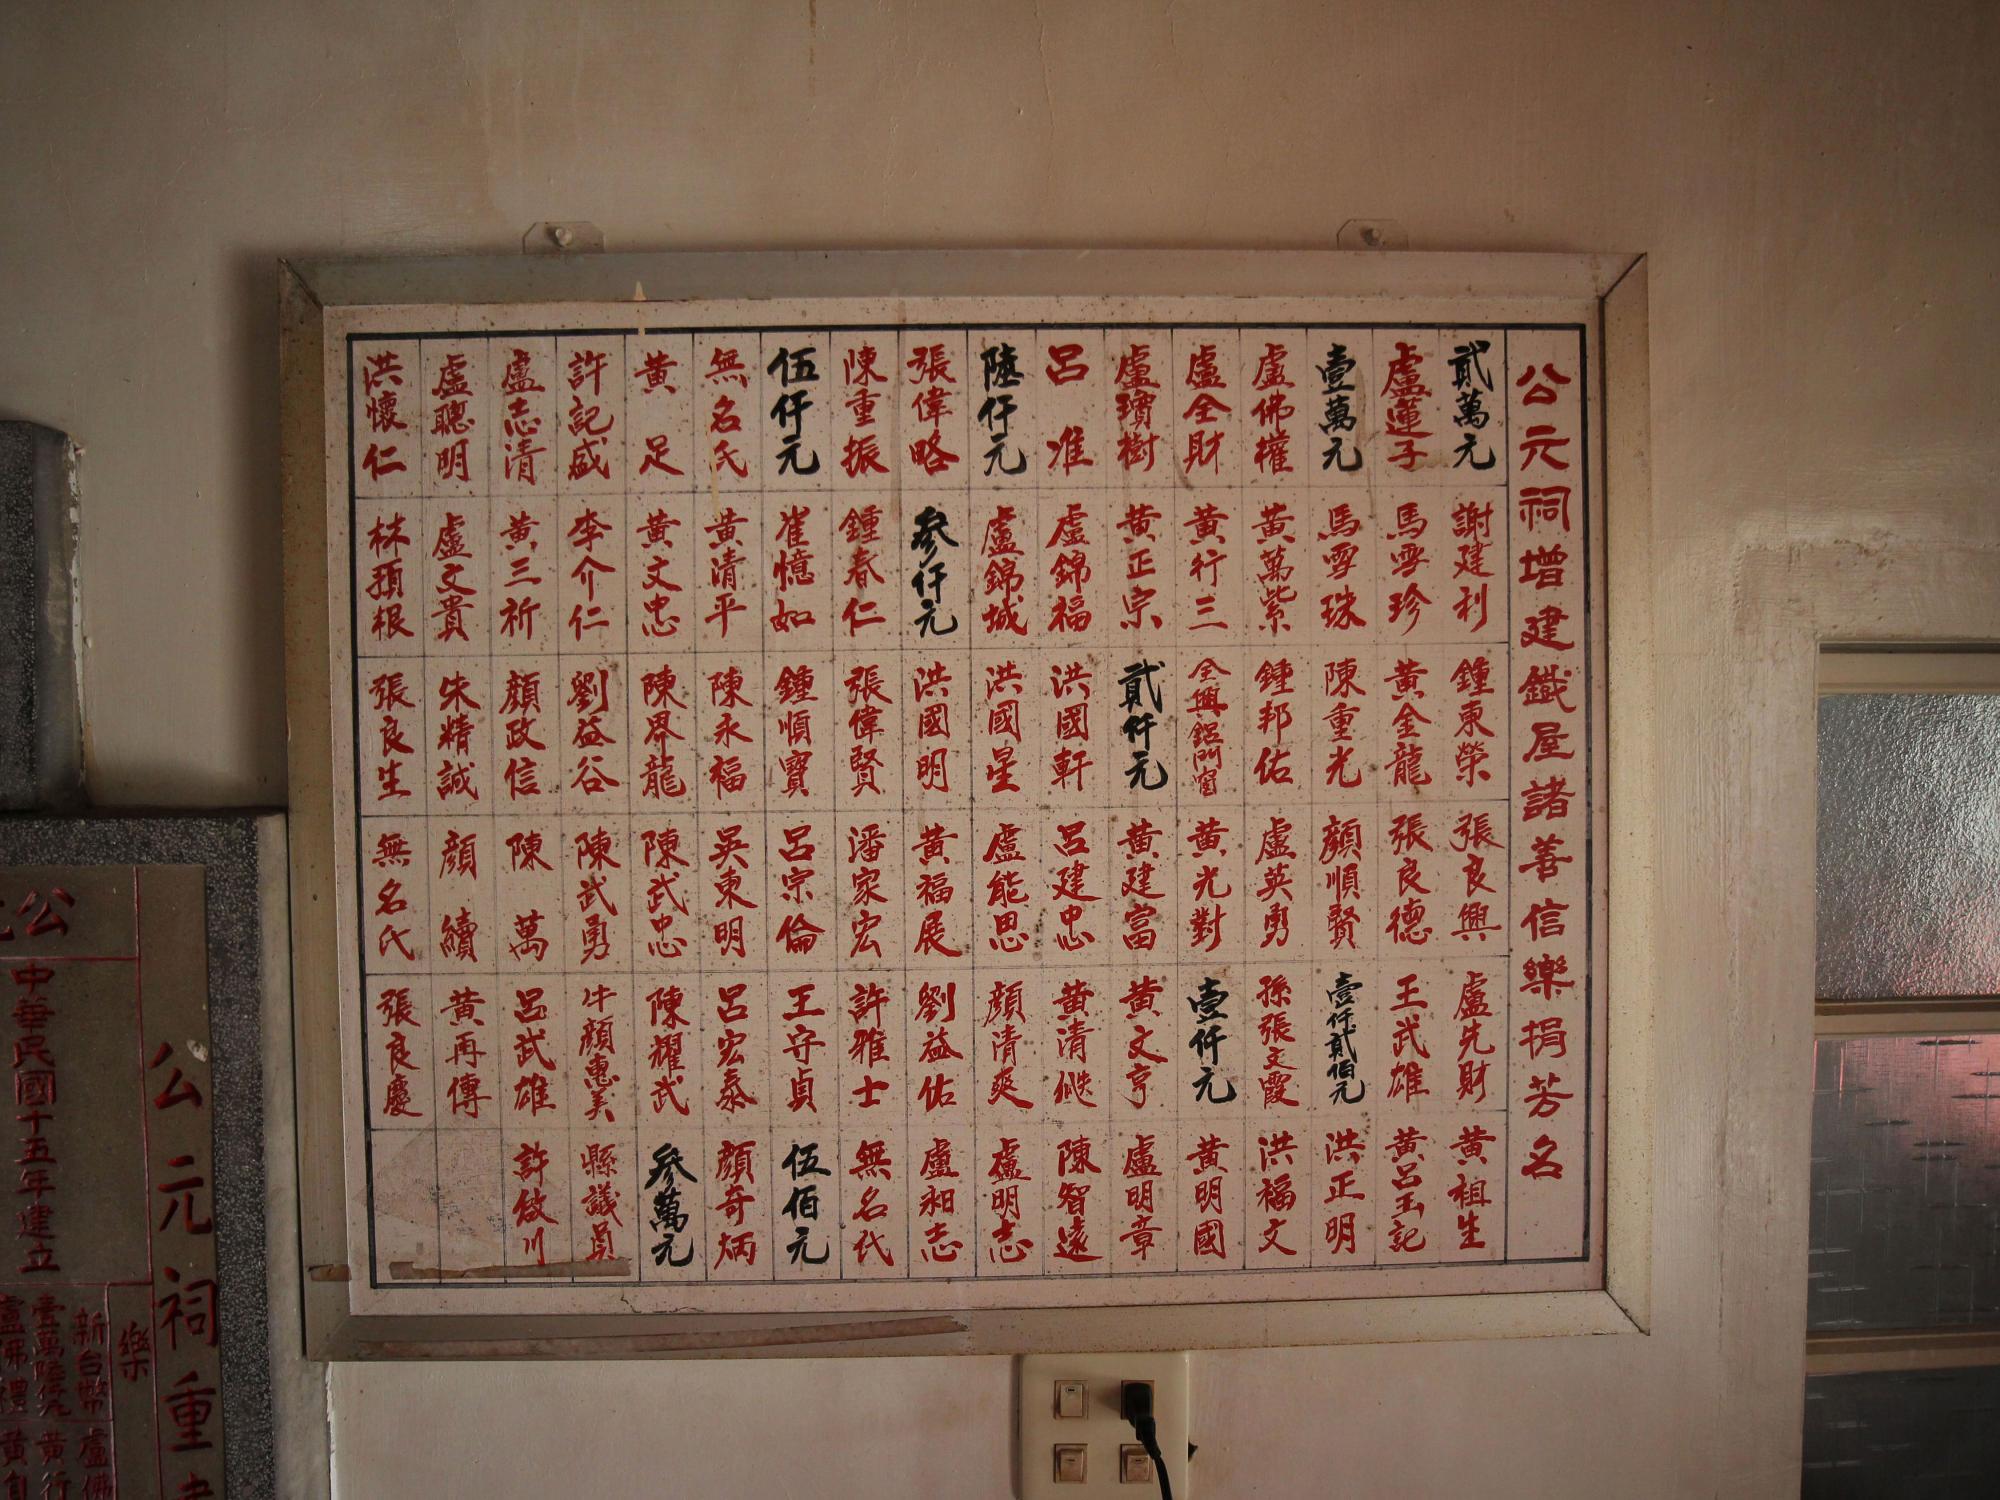 公元祠增建鐵屋諸善信樂捐芳名
貳萬元
盧蓮子
壹萬元
盧佛權
盧全財
盧瓊樹
呂准
陸仟元
張偉略
陳重振
伍仟元
無名氏
黃足
許記盛
盧志清
盧聰明
洪懷仁
謝建利
馬雪珍
馬雪珠
黃萬紫
黃行三
黃正宗
盧錦福
盧錦城
參仟元
鍾春仁
崔憶如
黃清平
黃文忠
李介仁
黃三祈
盧文貴
林預根
鍾東榮
黃金龍
陳重光
鍾邦佑
全興鋁門窗
貳仟元
洪國軒
洪國星
洪國明
張偉賢
鍾順寶
陳永福
陳界龍
劉益谷
顏政信
朱精誠
張良生
張良興
張良德
顏順賢
盧英勇
黃光對
黃建富
呂建忠
盧能思
黃福展
潘家宏
呂宗倫
吳東明
陳武忠
陳武勇
陳萬
顏續
無名氏
盧先財
王武雄
壹仟貳佰元
孫張文霞
壹仟元
黃文亨
黃清
顏清爽
劉益佑
許雅士
王守貞
呂宏泰
陳耀武
牛顏惠美
呂武雄
黃再傳
張良慶
黃祖生
黃呂玉記
洪正明
洪福文
黃明國
盧明章
陳智遠
盧明志
盧昶志
無名氏
伍佰元
顏奇炳
參萬元
縣議員
許啟川
公元祠重
公
中華民國十五年建立
樂
新台幣
盧佛
壹萬陸仟元
黃行
盧佛禮
黃自